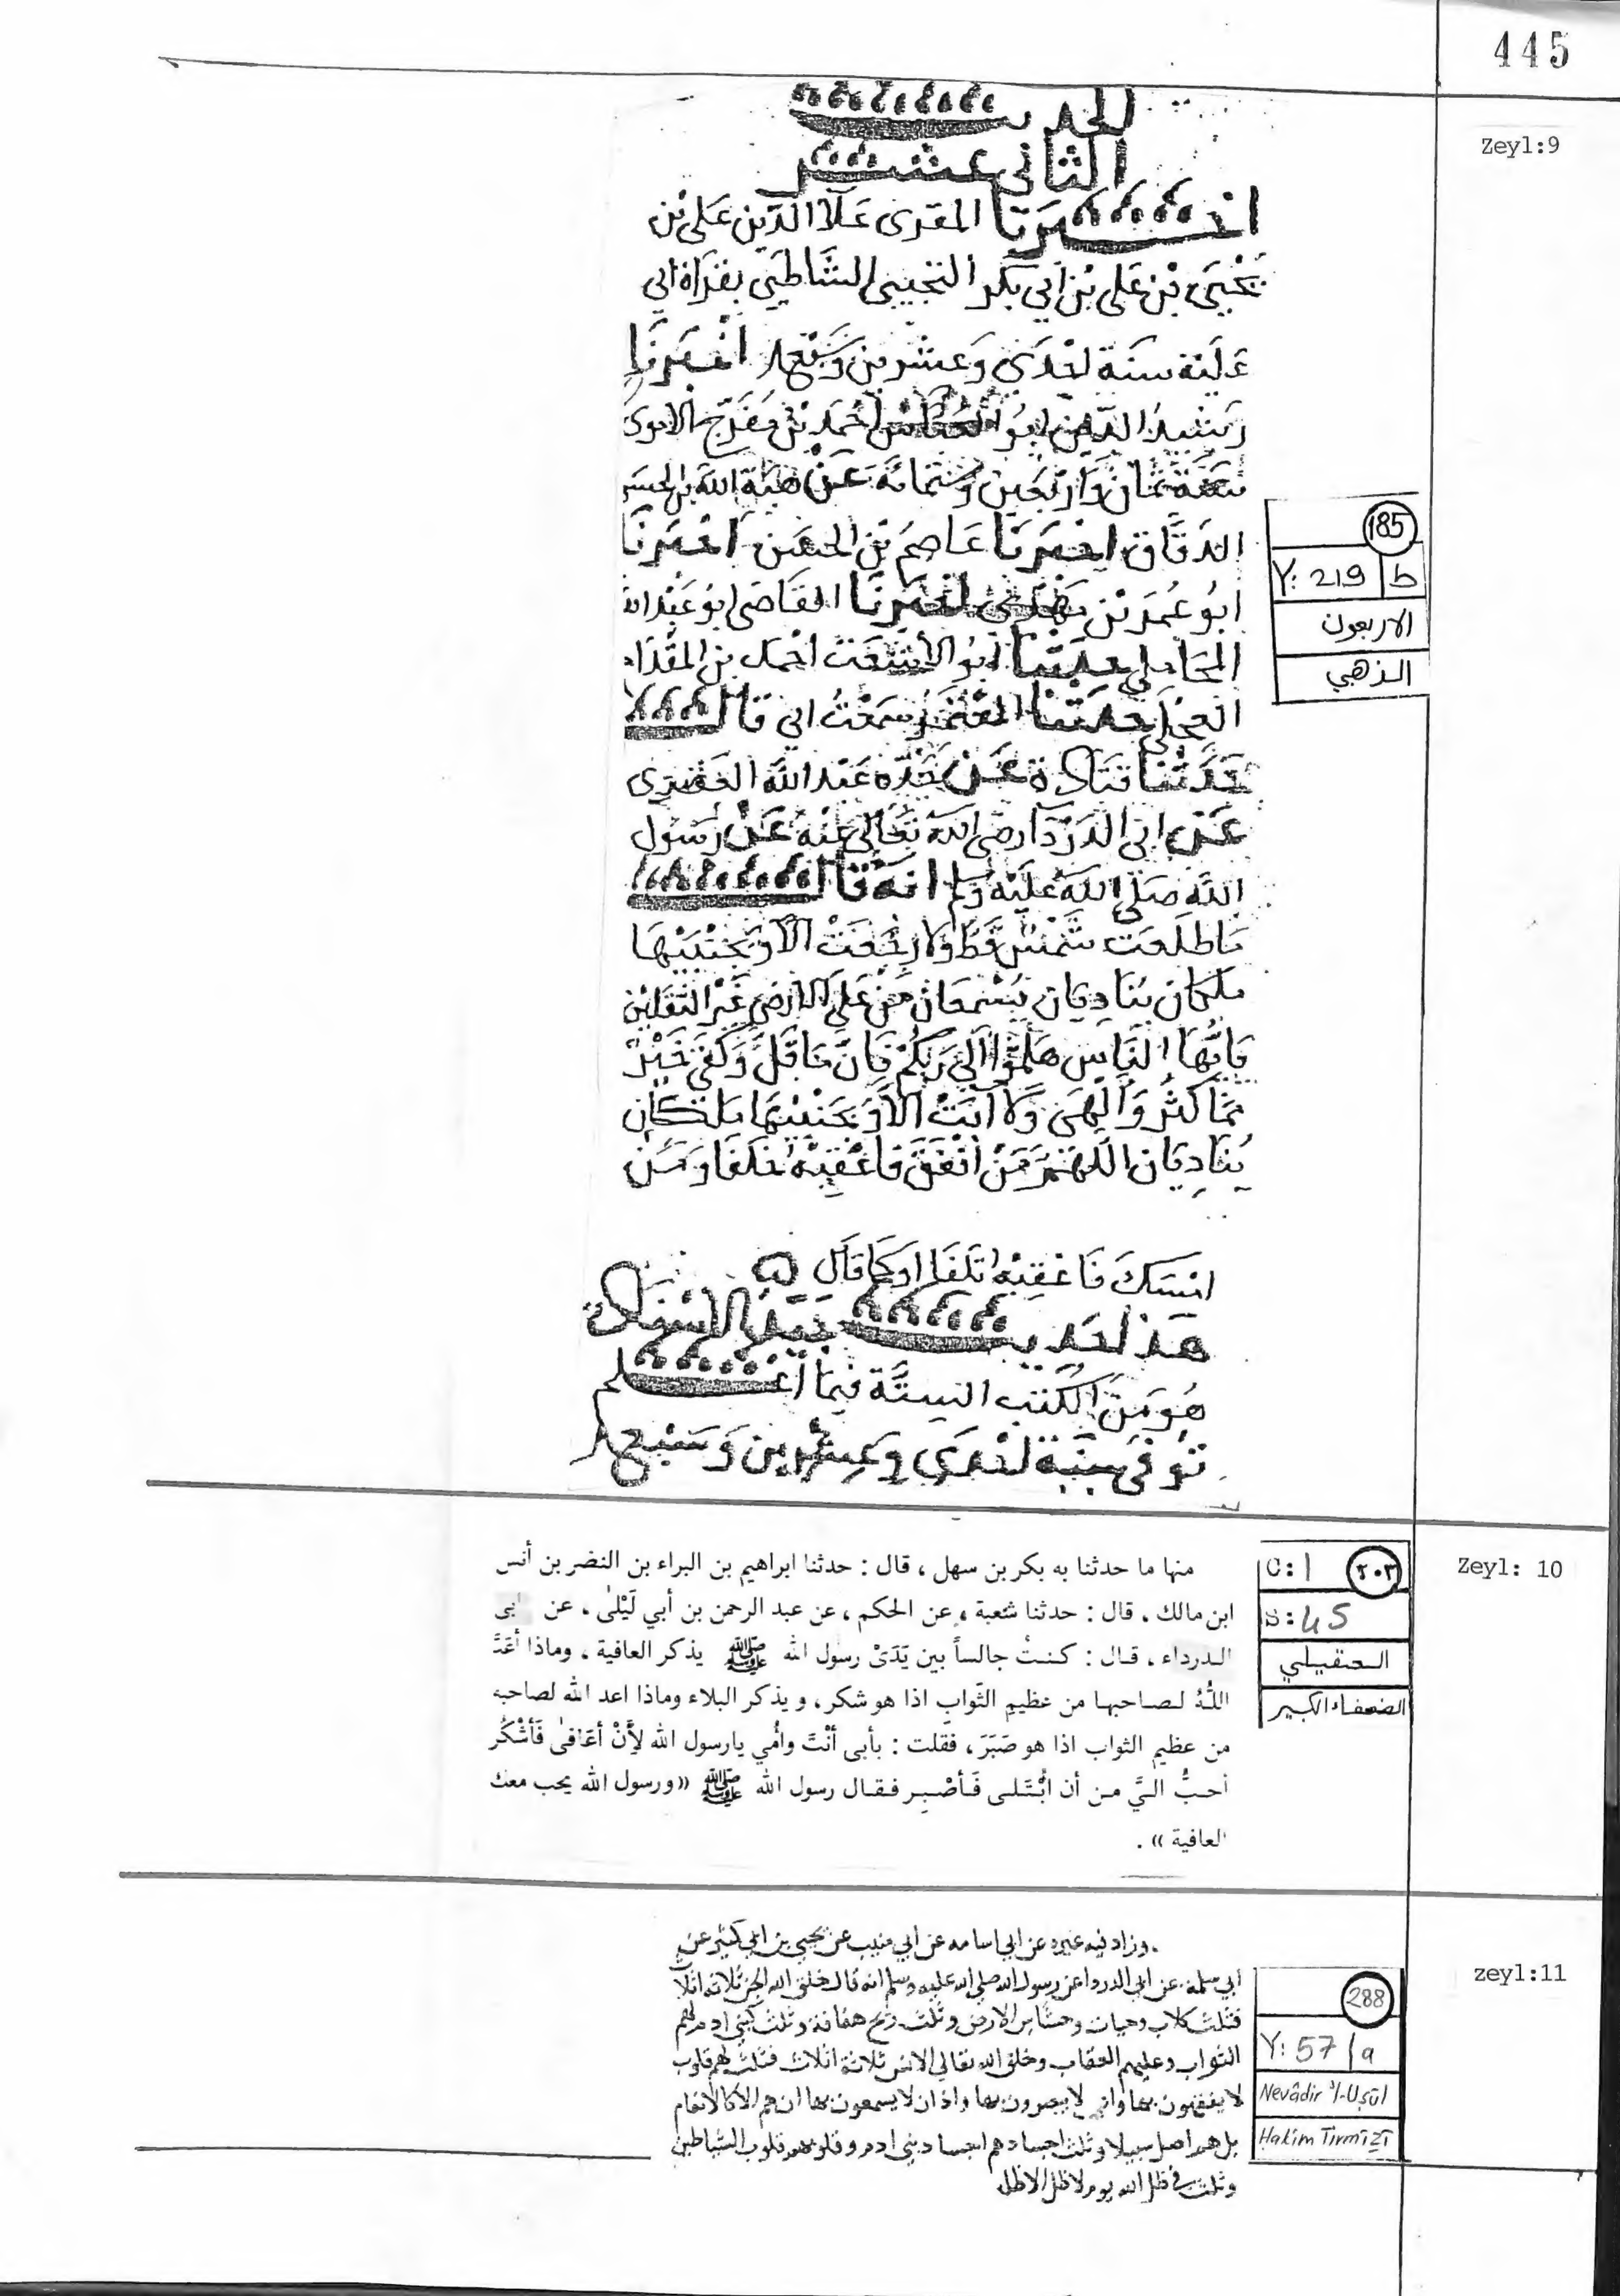 445
Zeyl:9
الحديث
الثاني عشر
اخبرنا المقرى علاالدين على بن
يحيى بن على بن ابى بكر التجيبى الشاطبى بقراة ابى
عليه سنة احدى وعشرين وسبعما اخبرنا
رشيد الدين ابو العباس احمد بن مفرج الاموى
سنة ثمان واربعين وستمائة عن هبة الله بن الحسن
الدقاق اخبرنا عاصم بن الحسن اخبرنا
ابو عمر بن مهدى اخبرنا القاضى ابو عبد الله
المحاملى حدثنا ابو الاشعث احمد بن المقدام
العجلى حدثنا المعتمر سمعت ابى قال
حدثنا قتادة عن خليد عبد الله العصرى
عن ابى الدردا رضى الله تعالى عنه عن رسول
الله صلى الله عليه وسلم انه قال
ما طلعت شمس قط ولا رجعت الا وبجنبتيها
ملكان يناديان يسمعان من على الارض غير الثقلين
ياايها الناس هلموا الى ربكم فان ما قل وكفى خير
مما كثر والهى ولا آبت الا وبجنبتيها ملكان
يناديان اللهم من انفق فاعقبه خلفا ومن
امسك فاعقبه تلفا او كما قال
هذا حديث جيد الاسناد
هو من الكتب الستة فيما اعلم
توفى سنة احدى وعشرين وسبع
185
Y: 219 b
الاربعون
الذهبي
Zeyl: 10
منها ما حدثنا به بكر بن سهل ، قال : حدثنا ابراهيم بن البراء بن النضر بن أنس
ابن مالك ، قال : حدثنا شعبة ، عن الحكم ، عن عبد الرحمن بن أبي لَيْلىٰ ، عن ابى
الدرداء ، قال : كنتُ جالساً بين يَدَىْ رسول الله ﷺ يذكر العافية ، وماذا أعَدَّ
اللّٰهُ لصاحبها من عظيمِ الثّوابِ اذا هو شكر ، ويذكر البلاء وماذا اعد الله لصاحبه
من عظيم الثواب اذا هو صَبَرَ ، فقلت : بأبى أنْتَ وأُمي يارسول الله لأَِنْ أعَافىٰ فَأَشْكُر
أحبُّ اليَّ من أن أُبْتَلى فَأصْبِر فقال رسول الله ﷺ «ورسول الله يحب معك
العافية » .
C: 1 ٢٠٣
S: 45
العقيلي
الضعفاء الكبير
zeyl:11
وزاد فيه غيره عن ابى اسامه عن ابي منيب عن يحيي بن ابي كثير عن
ابي سلمة عن ابي الدرداء عن رسول الله صلي الله عليه وسلم انه قال خلق الله الجن ثلاثه اثلاث
فثلث كلاب وحيات وخشاش الارض وثلث ريح هفافة وثلث كبني ادم لهم
الثواب وعليهم العقاب وخلق الله تعالي الانس ثلاثة اثلاث فثلث لهم قلوب
لا يفقهون بها واعين لا يبصرون بها واذان لا يسمعون بها ان هم الا كالانعام
بل هم اضل سبيلا وثلث اجسادهم اجساد بني ادم وقلوبهم قلوب الشياطين
وثلث في ظل الله يوم لا ظل الا ظله
288
Y: 57/a
Nevâdir'l-Uṣūl
Ḥakīm Tirmīzī